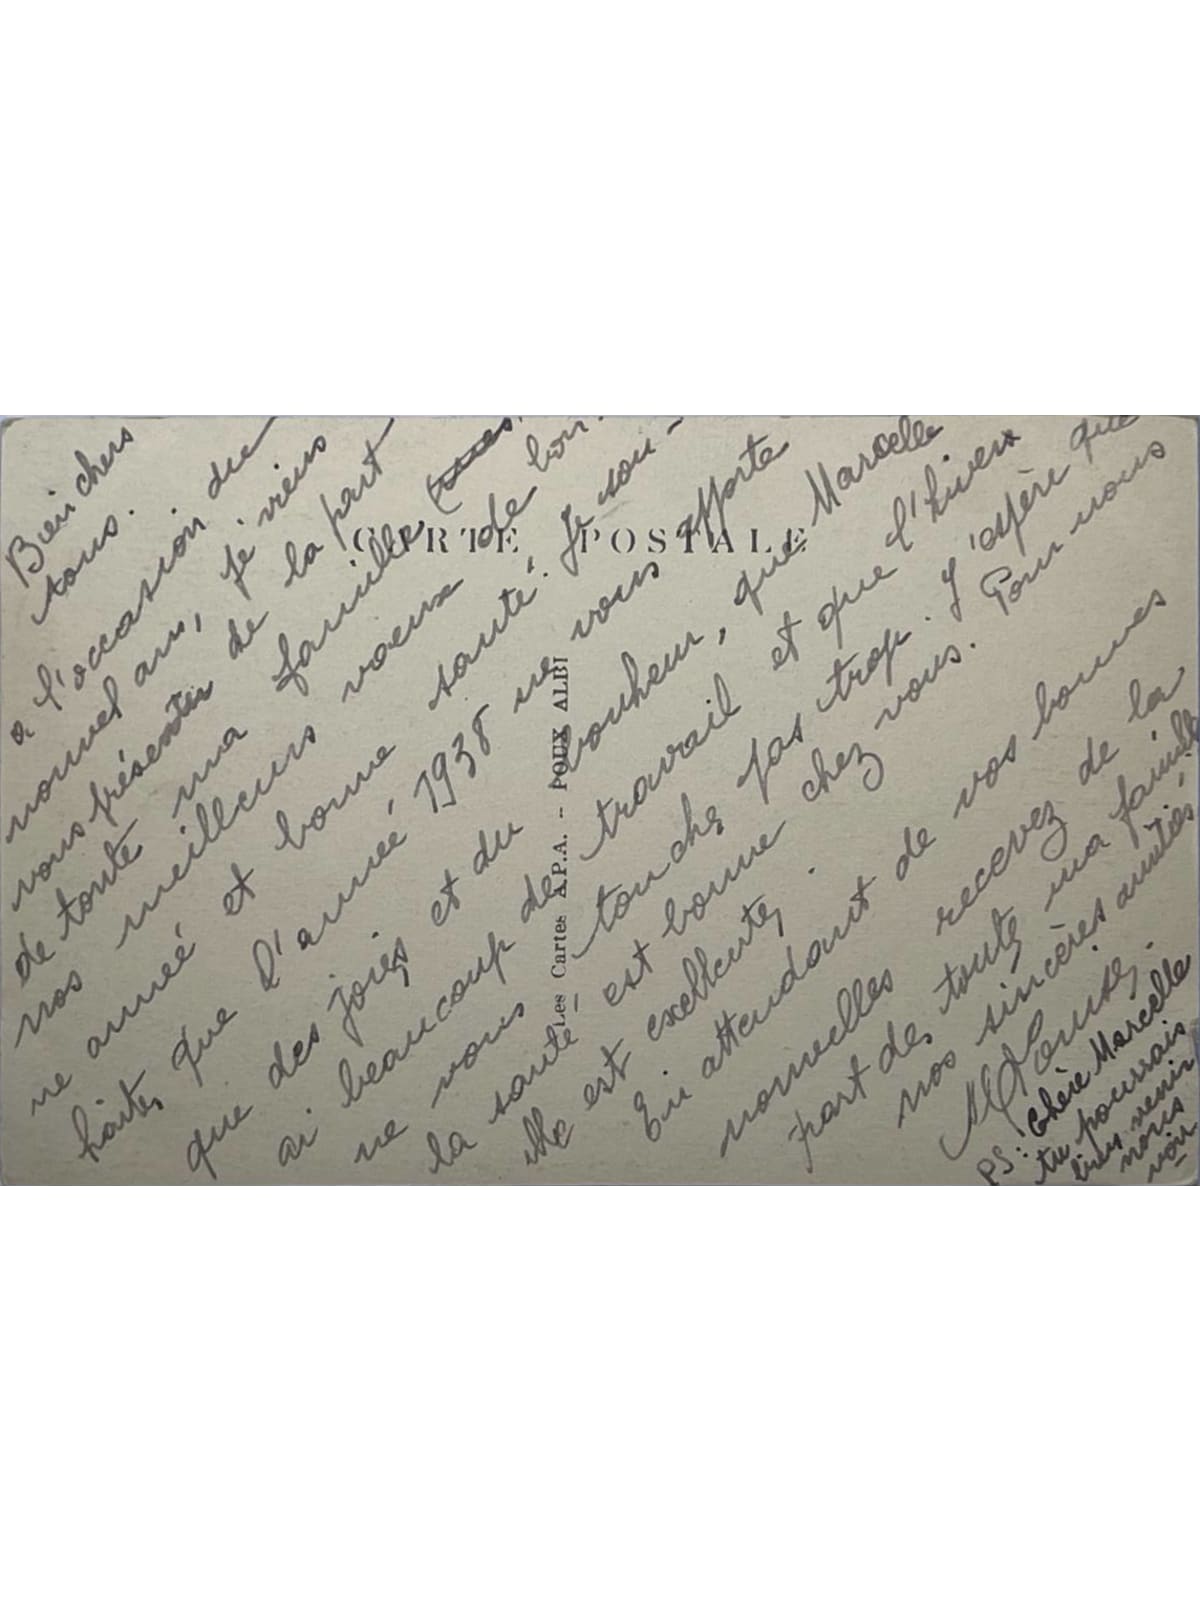 Bien chers
tous.
a l'occasion du
nouvel an, je viens
vous présenter de la part
de toute ma famille
nos meilleurs voeux de bon-
ne anneé et bonne santé. Je sou-
haite que l'anneé 1938 ne vous apporte
que des joies et du bonheur, que Marcelle
ai beaucoup de travail et que l'hiver
ne vous touche pas trop. J'espère que
la santé est bonne chez vous. Pour nous
elle est exellente.
En attendant de vos bonnes
nouvelles recevez de la
part de toute ma famille
nos sincères amitiés.
Louise.
PS: Chère Marcelle
tu pourrais
bien venir
nous
voir
CARTE POSTALE
Les Cartes A.P.A. - POUX ALBI